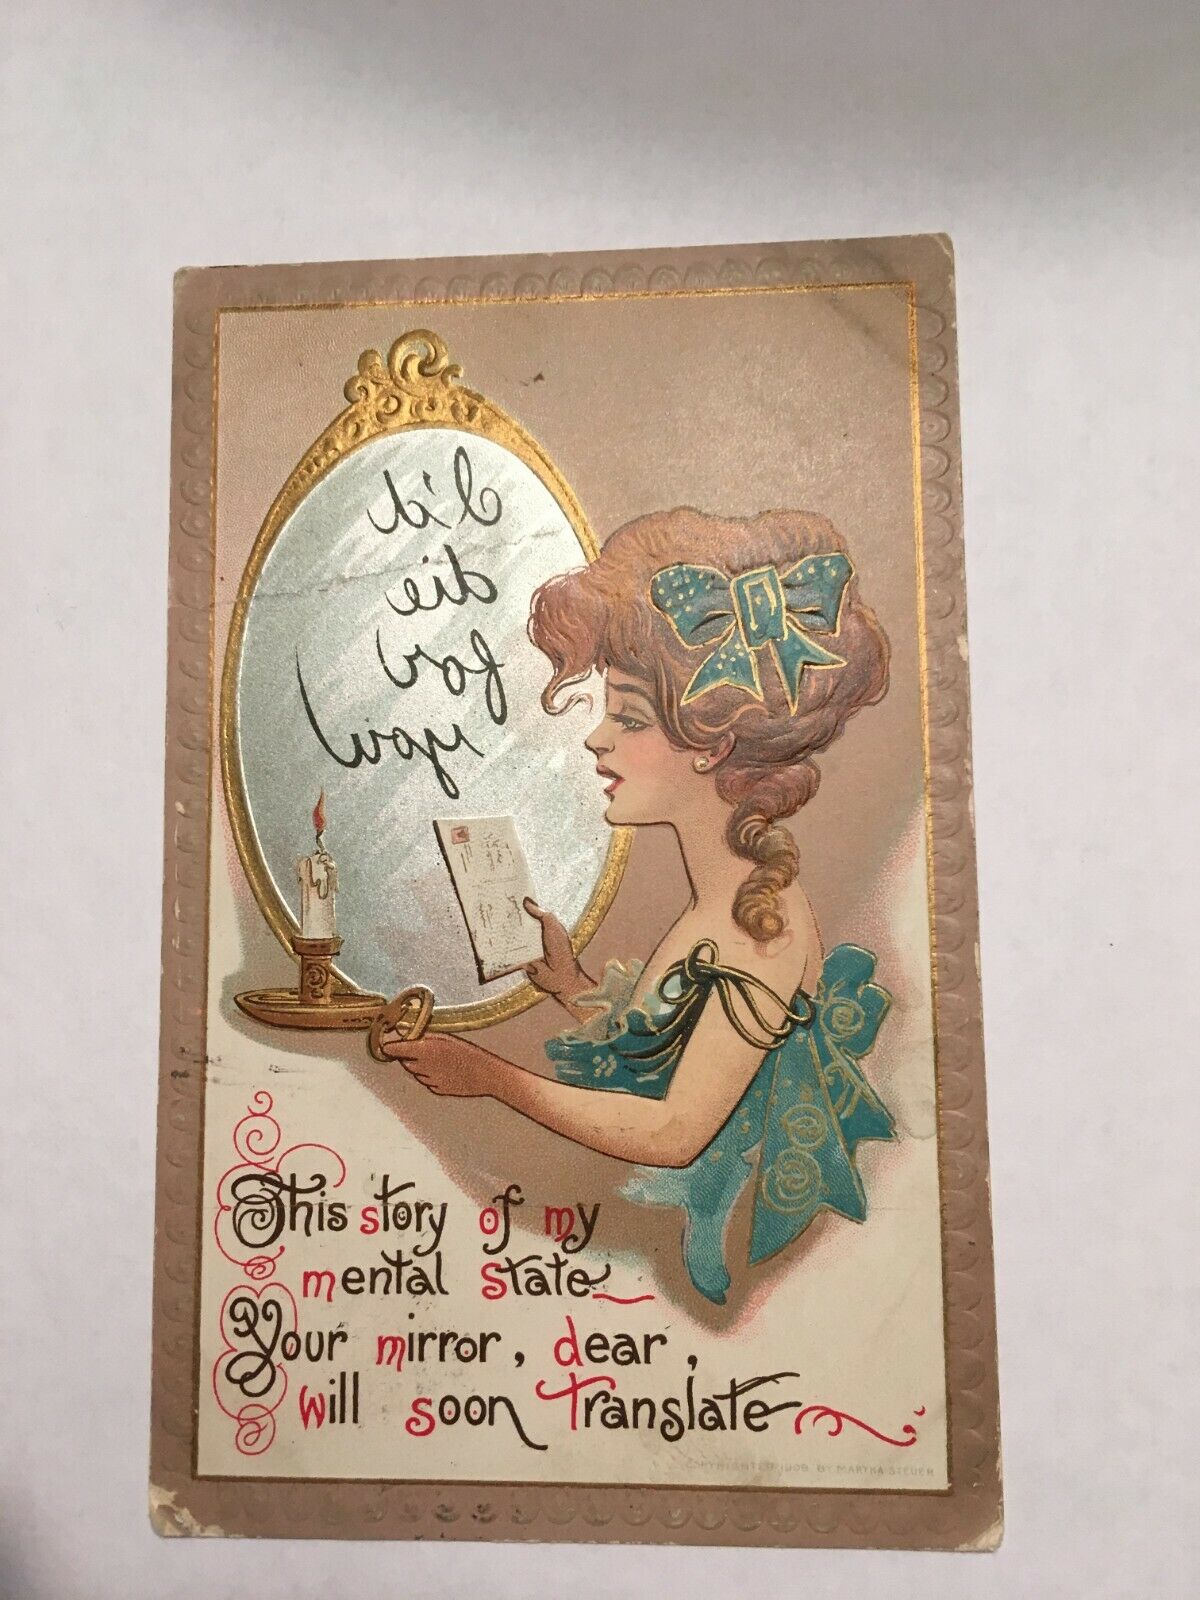 I'd
die
for
you
This story of my
mental state
Your mirror, dear,
will soon translate
COPYRIGHTED 1908 BY MARTHA STEUER